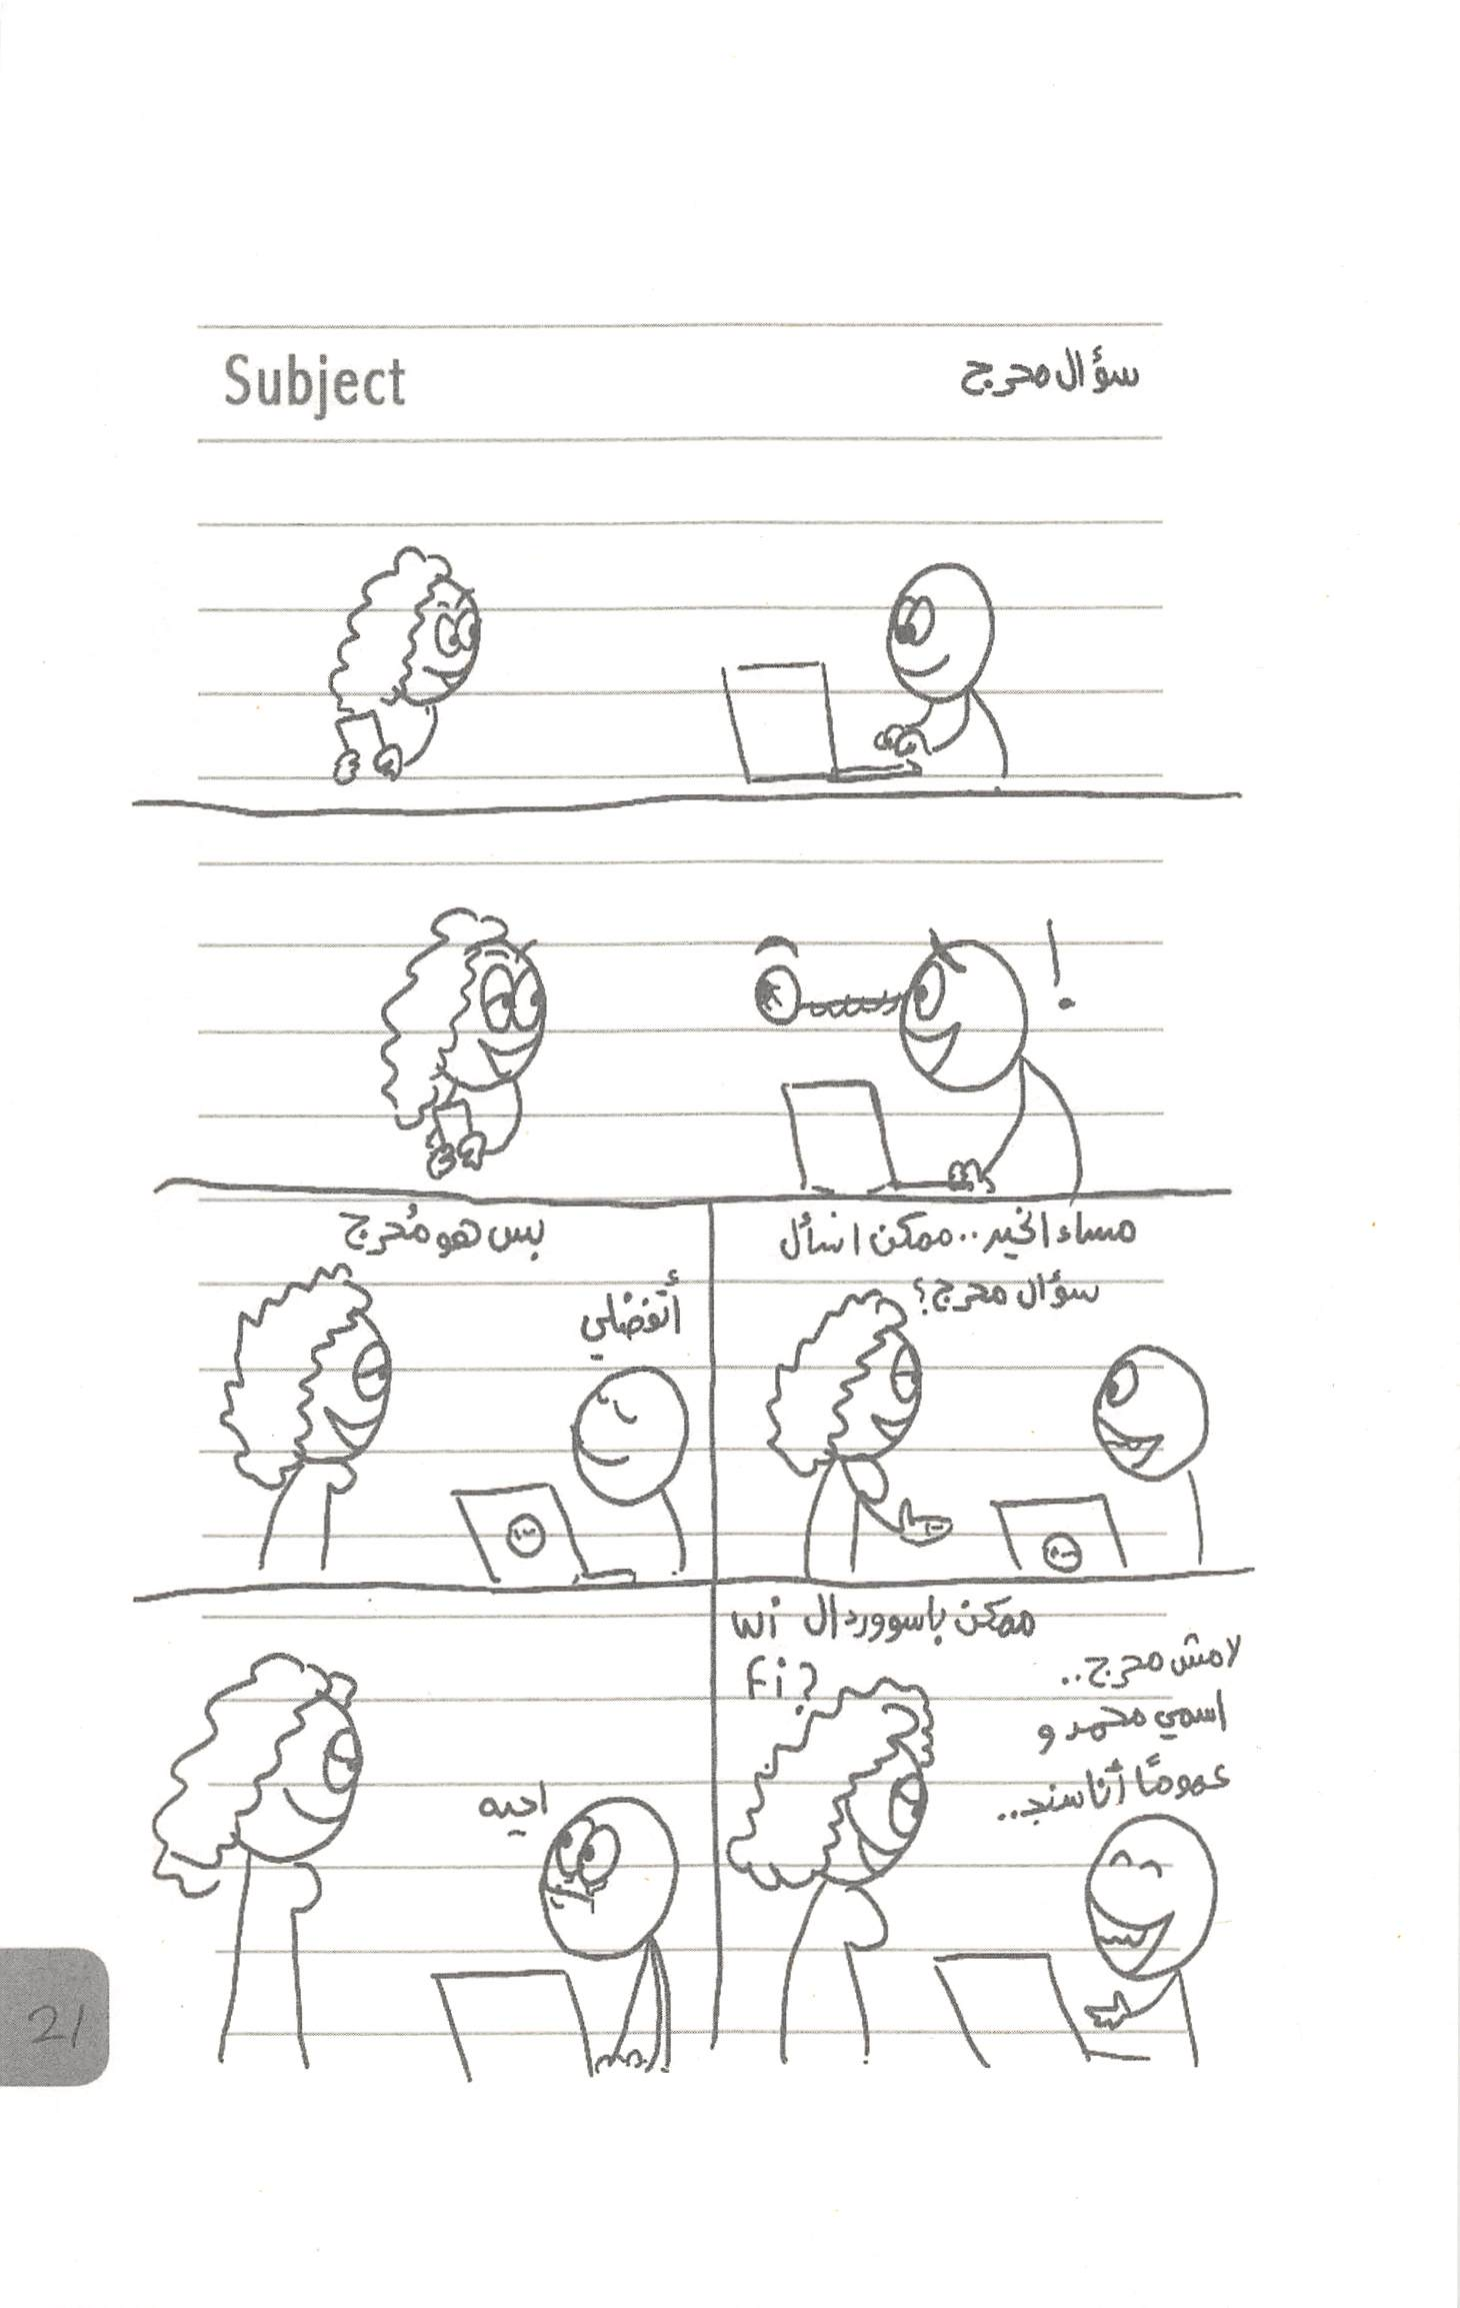 Subject
سؤال محرج
مساء الخير.. ممكن اسأل
سؤال محرج؟
بس هو مُحرج
أتفضلي
ممكن باسوورد ال Wi
Fi?
لا مش محرج..
اسمي محمد و
عمومًا أنا سنجـ..
احيه
21